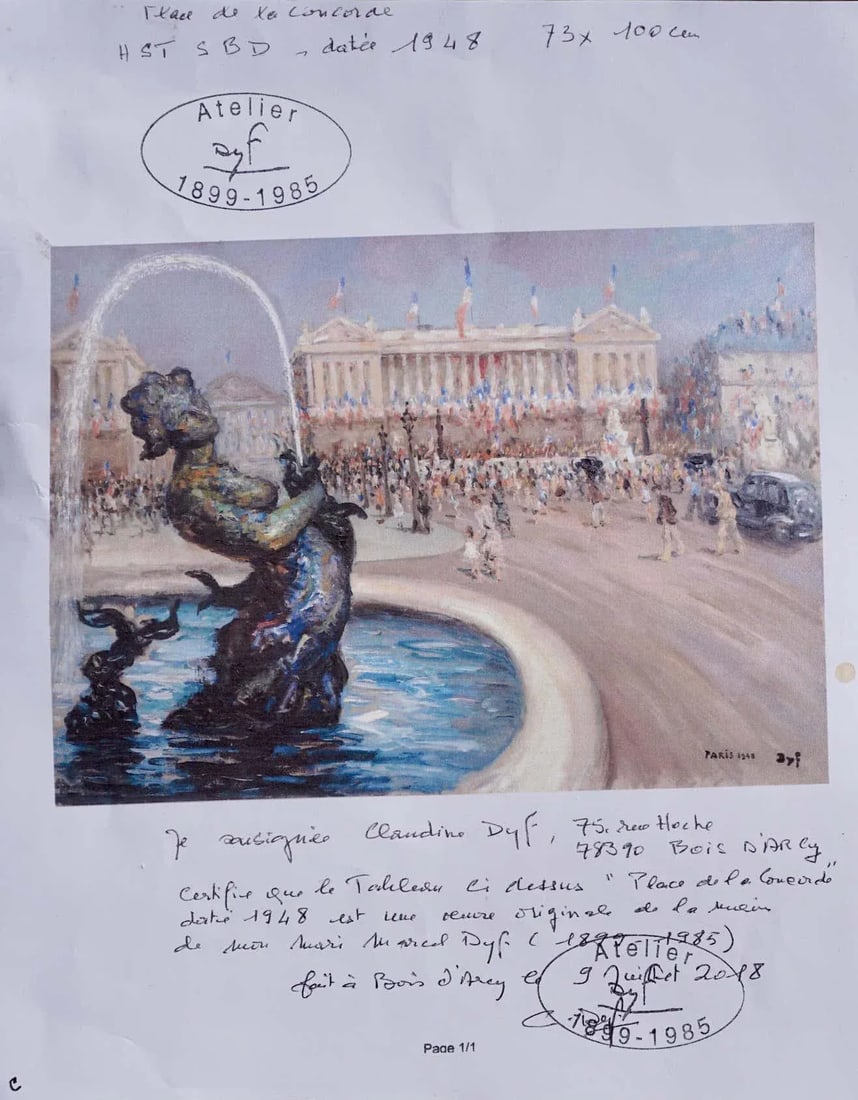 Place de la Concorde
HST SBD - datée 1948 73x 100cm
Atelier
Dyf
1899-1985
PARIS 1948 Dyf
Je soussignée Claudine Dyf, 75, rue Hoche
78390 BOIS D'ARCY
Certifie que le Tableau ci dessus "Place de la Concorde"
daté 1948 est une oeuvre originale de la main
de mon mari Marcel Dyf (1899-1985)
fait à Bois d'Arcy le 9 Juillet 2018
Atelier
Dyf
1899-1985
Page 1/1
C